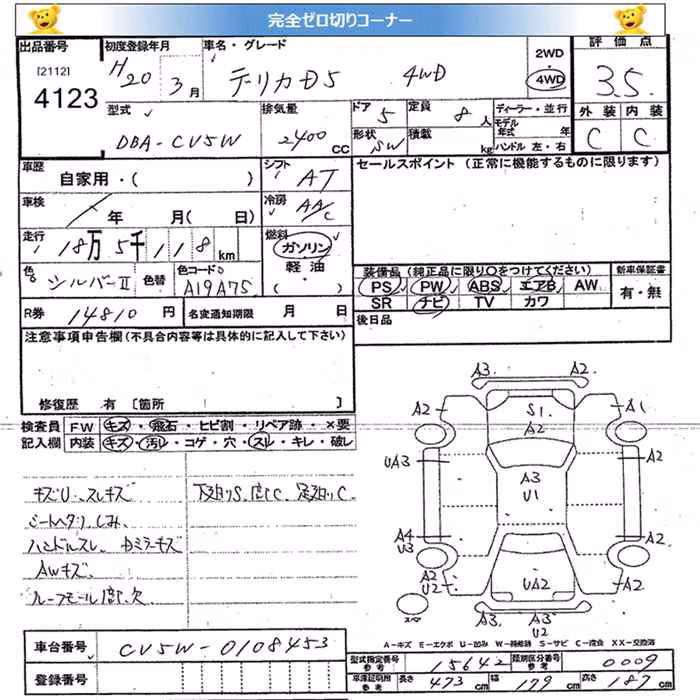 完全ゼロ切りコーナー
出品番号
[2112]
4123
初度登録年月
H20 3月
車名・グレード
デリカD5 4WD
2WD
4WD
評価点
3.5
型式
DBA-CV5W
排気量
2400 CC
ドア
5
定員
8人
形状
SW
積載
kg
ディーラー・並行
モデル年式 年
ハンドル 左・右
外装 内装
C C
車歴
自家用・( )
シフト
AT
セールスポイント (正常に機能するものに限ります)
車検
年 月( 日)
冷房
AA/C
走行
18万5千118km
燃料
ガソリン
軽油
( )
色
シルバーII
色替
色コードNo
A19A75
装備品 (純正品に限り○をつけてください)
PS PW ABS エアB AW
SR ナビ TV カワ
新車保証書
有・無
R券
14810円
名変通知期限 月 日
後日品
注意事項申告欄(不具合内容等は具体的に記入して下さい)
修復歴 有 [箇所 ]
検査員記入欄
FW キズ・飛石・ヒビ割・リペア跡・×要
内装 キズ・汚レ・コゲ・穴・スレ・キレ・破レ
キズU、スレキズ
シートヘタリ、しみ
ハンドルスレ
AWキズ
下廻りS
A3 A2
A2 S1 A1
A2
UA3 A3 A2
U1
A4
U3 A2
A2
U2 UA2 A2
スペア
A3 A3
U2
A-キズ E-エクボ U-凹み W-補修跡 S-サビ C-腐食 XX-交換済
車台番号
CV5W-0108453
登録番号
型式指定番号
参考
15642
類別区分番号
参考
0009
車庫証明用
参考
長さ 473cm 幅 179cm 高さ 187cm